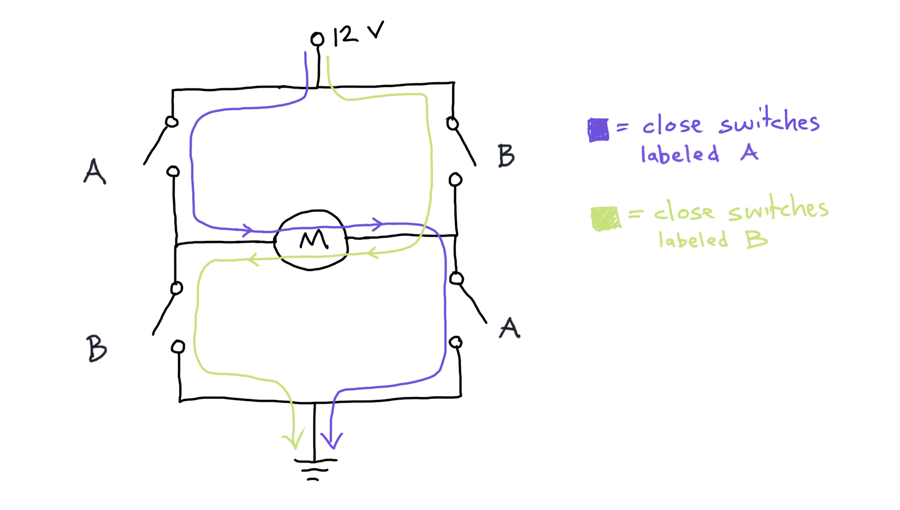 12 V
A
B
M
B
A
= close switches
labeled A
= close switches
labeled B